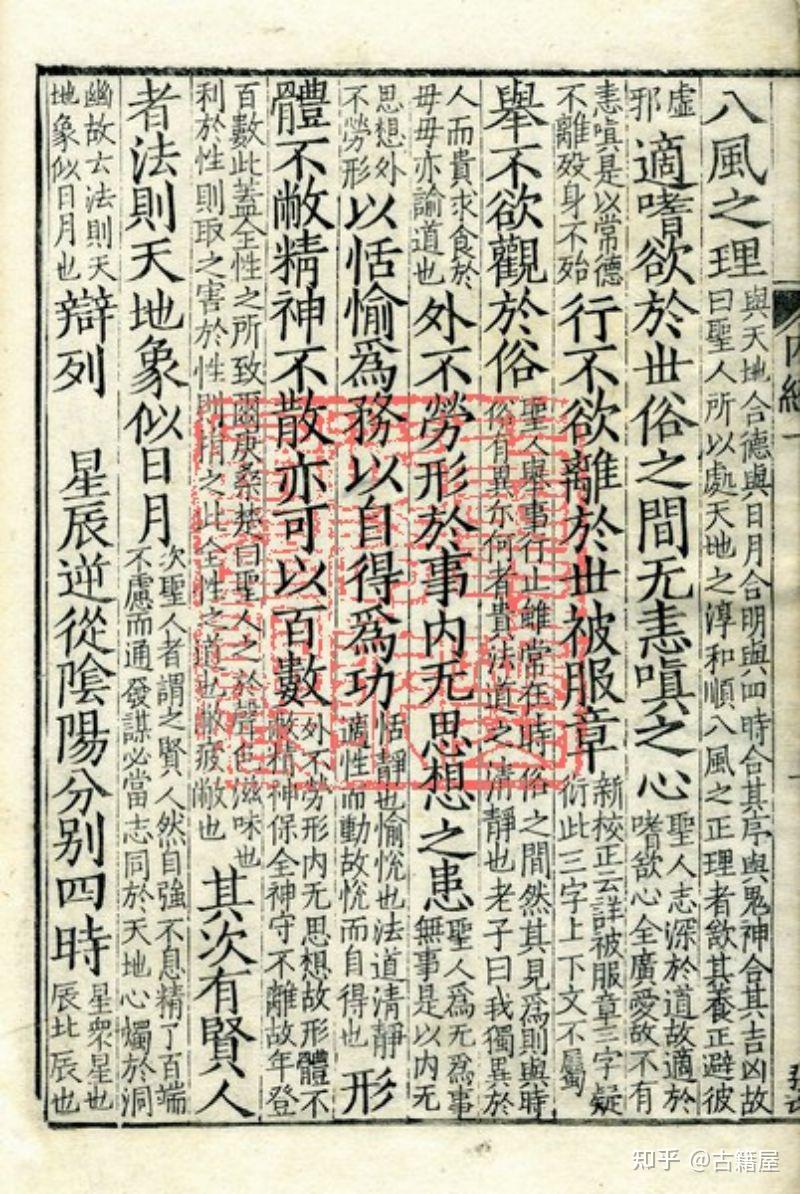 八風之理與天地合德與日月合明與四時合其序與鬼神合其吉凶故曰聖人所以處天地之淳和順八風之正理者欲其養正避彼
虛邪適嗜欲於世俗之間无恚嗔之心聖人志深於道故適於嗜欲心全廣愛故不有
恚嗔是以常德不離殁身不殆行不欲離於世被服章新校正云詳被服章三字疑衍此三字上下文不屬
舉不欲觀於俗聖人舉事行止雖常在時俗之間然其見爲則與時俗有異尓何者貴法道之清靜也老子曰我獨異於
人而貴求食於母母亦諭道也外不勞形於事内无思想之患聖人爲无爲事無事是以内无
思想外不勞形以恬愉爲務以自得爲功恬靜也愉恱也法道清靜適性而動故恱而自得也形
體不敝精神不散亦可以百數外不勞形内无思想故形體不敝精神保全神守不離故年登
百數此蓋全性之所致爾庚桑楚曰聖人之於聲色滋味也利於性則取之害於性則捐之此全性之道也敝疲敝也其次有賢人
者法則天地象似日月次聖人者謂之賢人然自強不息精了百端不慮而通發謀必當志同於天地心燭於洞
幽故云法則天地象似日月也辯列 星辰逆從陰陽分别四時星衆星也辰北辰也
内經一
知乎 @古籍屋